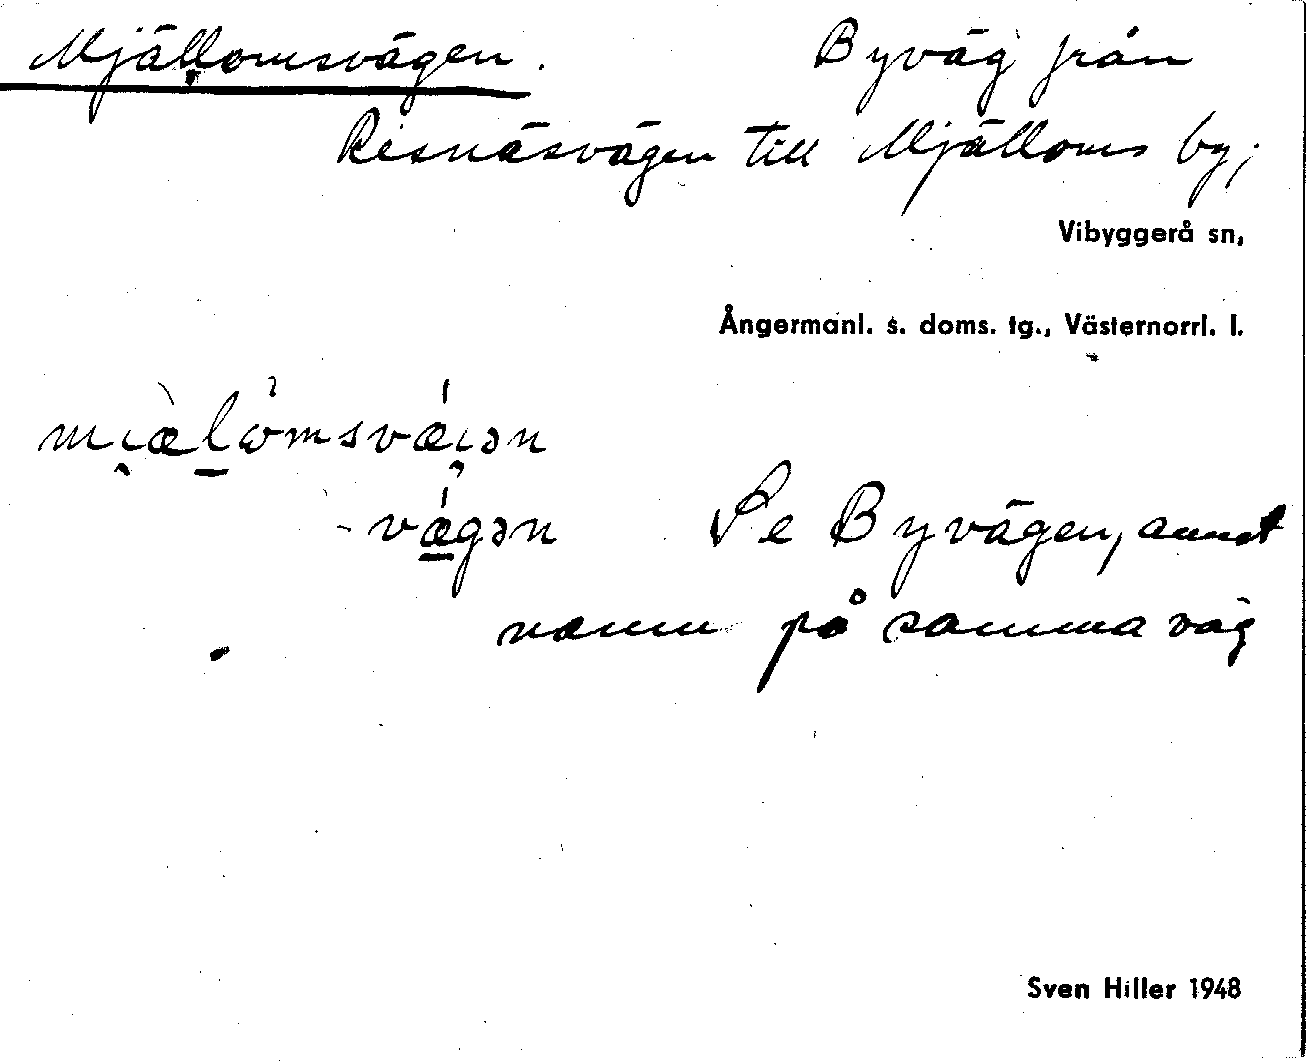 Mjällomsvägen. Byväg från
Risnäsvägen till Mjälloms by;
Vibyggerå sn,
Ångermanl. s. doms. tg., Västernorrl. l.
mi̯æ̀lòmsvǽi̯ən
-vǽgən Se Byvägen, annat
namn på samma väg
Sven Hiller 1948